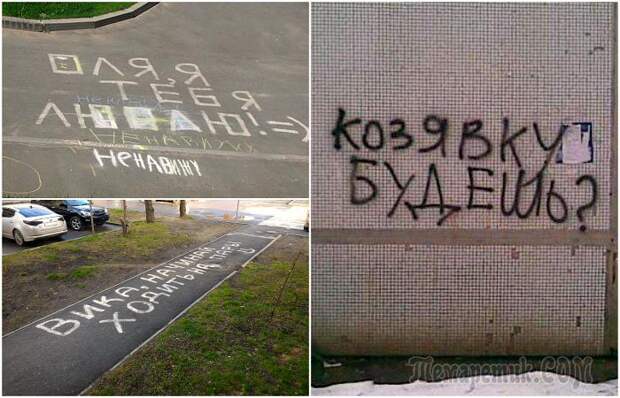 ОЛЯ, Я
ТЕБЯ
ЛЮБЛЮ! =)
НЕНАВИЖУ
НЕНАВИЖУ
ВИКА, НАЧИНАЙ
ХОДИТЬ НА ПАРЫ
КОЗЯВКУ
БУДЕШЬ?
Тетаретик.СОМ